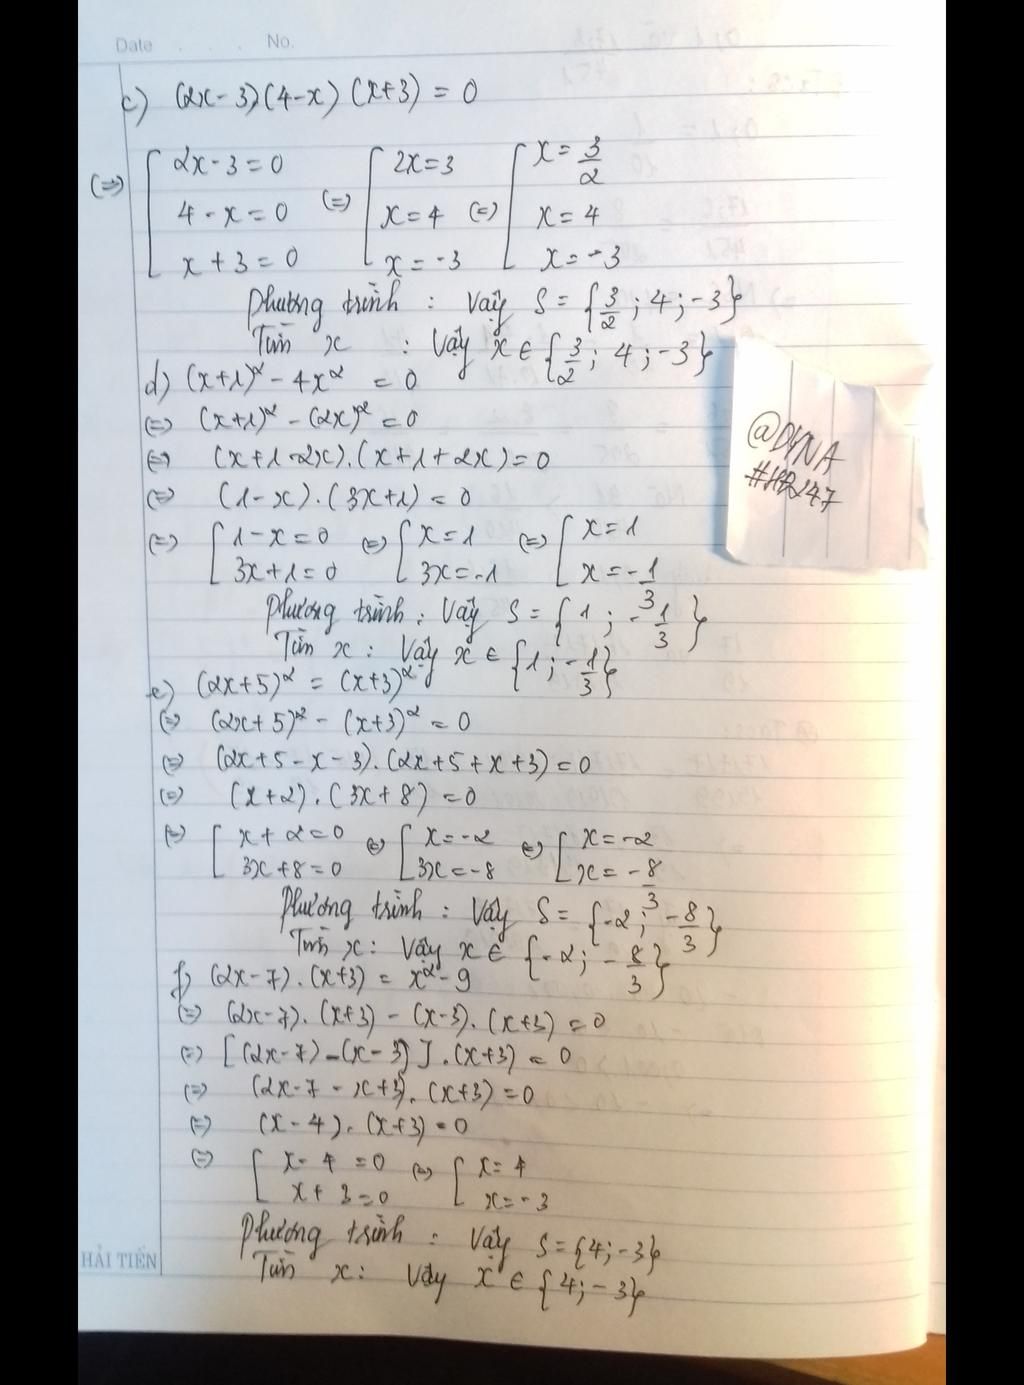 Date . . . No.
c) (2x-3)(4-x)(x+3) = 0
(=>) [ 2x-3=0 (=) [ 2x=3 (=) [ x=3/2
4-x=0 x=4 x=4
x+3=0 x=-3 x=-3
Phương trình : Vậy S = {3/2; 4; -3}
Tìm x : Vậy x ∈ {3/2; 4; -3}
d) (x+1)² - 4x² = 0
(=) (x+1)² - (2x)² = 0
(=) (x+1-2x).(x+1+2x) = 0
(=) (1-x).(3x+1) = 0
(=) [ 1-x=0 (=) [ x=1 (=) [ x=1
3x+1=0 3x=-1 x=-1/3
Phương trình : Vậy S = {1; -1/3}
Tìm x : Vậy x ∈ {1; -1/3}
e) (2x+5)² = (x+3)²
(=) (2x+5)² - (x+3)² = 0
(=) (2x+5-x-3).(2x+5+x+3) = 0
(=) (x+2).(3x+8) = 0
(=) [ x+2=0 (=) [ x=-2 (=) [ x=-2
3x+8=0 3x=-8 x=-8/3
Phương trình : Vậy S = {-2; -8/3}
Tìm x : Vậy x ∈ {-2; -8/3}
f) (2x-7).(x+3) = x²-9
(=) (2x-7).(x+3) - (x-3).(x+3) = 0
(=) [(2x-7)-(x-3)].(x+3) = 0
(=) (2x-7-x+3).(x+3) = 0
(=) (x-4).(x+3) = 0
(=) [ x-4=0 (=) [ x=4
x+3=0 x=-3
Phương trình : Vậy S={4;-3}
Tìm x : Vậy x ∈ {4;-3}
HẢI TIẾN
@DYNA